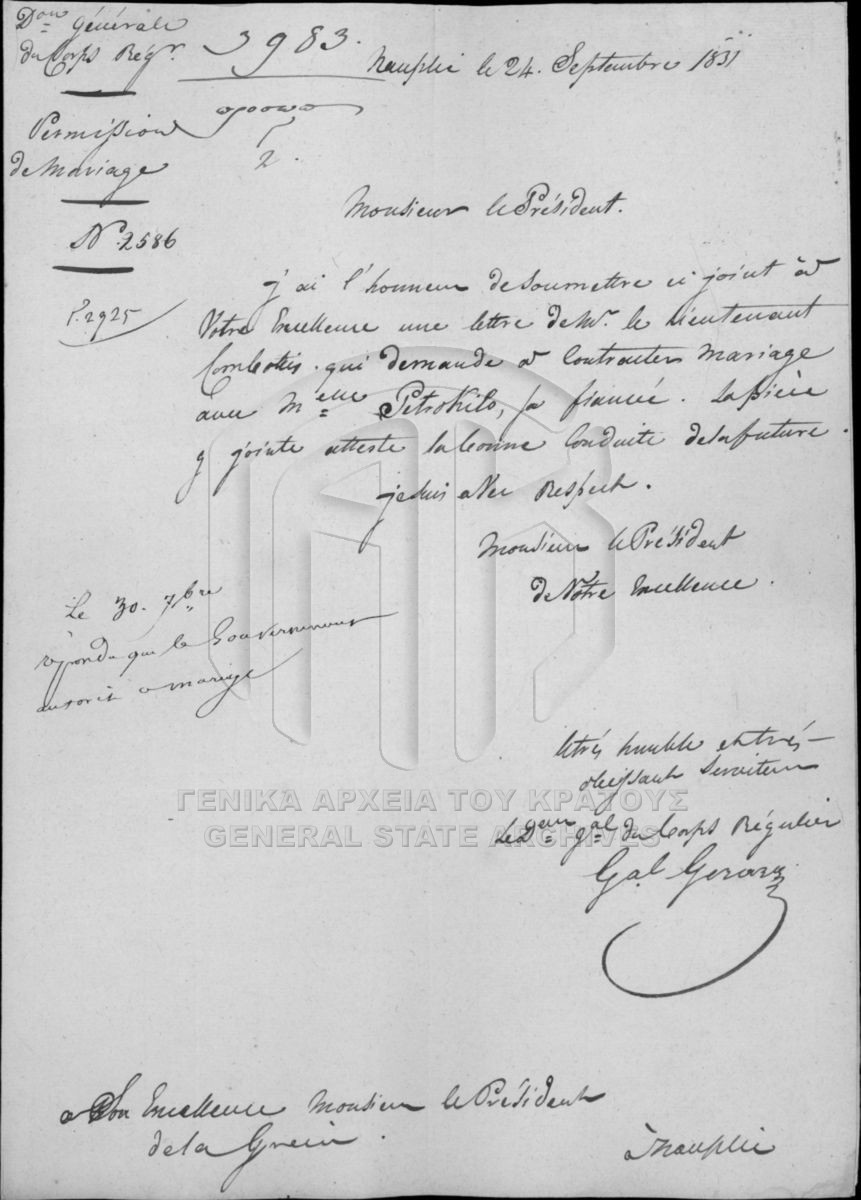 Don Générale
du Corps Régr.
3983.
Nauplie le 24. Septembre 1831
Permission
de Mariage
2.
N. 2586
P. 2925
Monsieur le Président.
j'ai l'honneur de Soumettre ci joint à
Votre Excellence une lettre de Mr. le Lieutenant
Combotis. qui demande à Contracter Mariage
avec Melle Petrokilo, sa fiancée. La pièce
y jointe atteste la bonne Conduite de la future.
je suis avec Respect.
Monsieur le Président
de Votre Excellence.
Le 30. 7bre
répondu que le Gouvernement
autorise ce mariage
le très humble et très
obéissant Serviteur
Le Deur gal du Corps Régulier
Gal Gerard
ΓΕΝΙΚΑ ΑΡΧΕΙΑ ΤΟΥ ΚΡΑΤΟΥΣ
GENERAL STATE ARCHIVES
a Son Excellence Monsieur le Président
de la Grèce.
à Nauplie